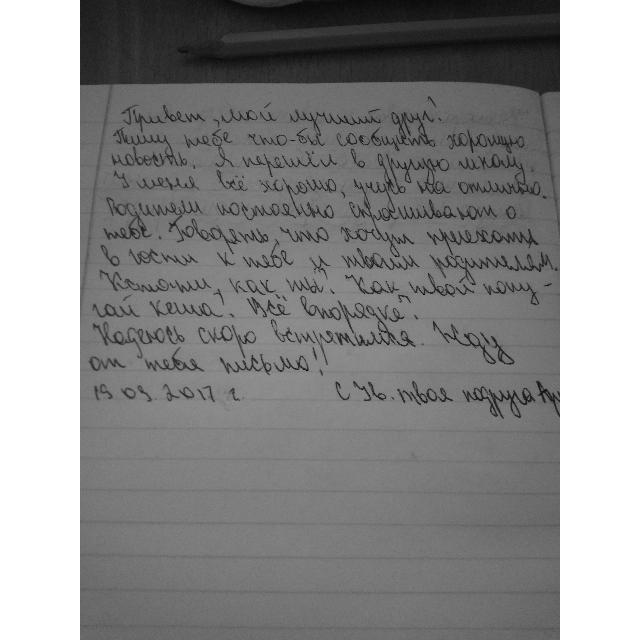 Привет, мой лучший друг!
Пишу тебе что-бы сообщить хорошую
новость. Я перешёл в другую школу.
У меня всё хорошо, учусь на отлично.
Родители постоянно спрашивают о
тебе. Говорять, что хочут приехать
в гости к тебе и твоим родителям.
Кстати, как ты? Как твой попу-
гай кеша? Всё впорядке?
Надеюсь скоро встретимся. Жду
от тебя письмо!
19 09. 2017 г. С Ув. твоя подруга